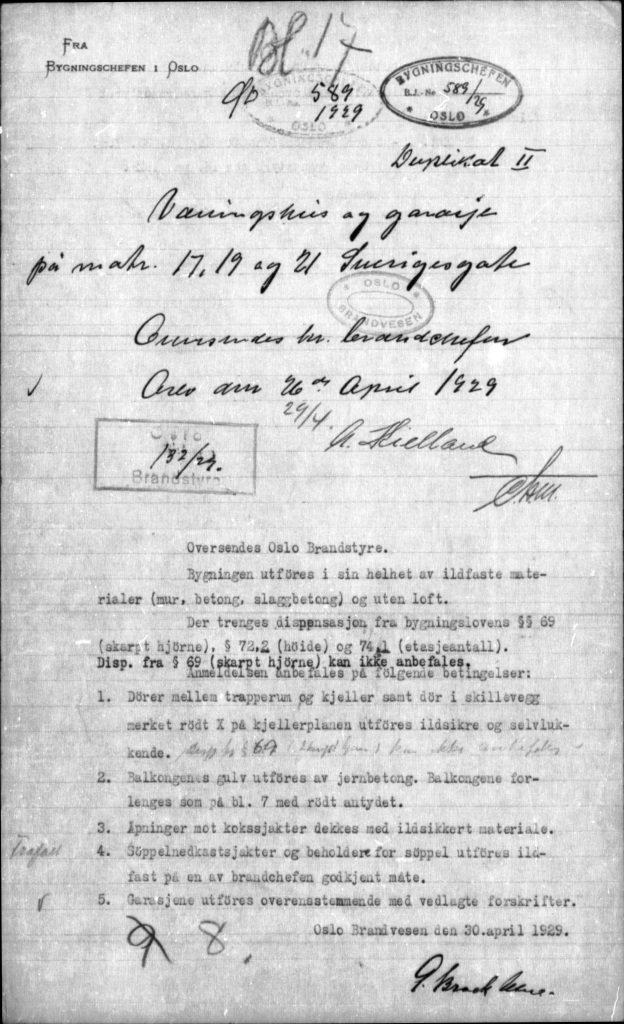 Bl. 17
FRA
BYGNINGSCHEFEN I OSLO
589
1929
OSLO
BYGNINGSCHEFEN
B.J.-Nr. 589/29.
* OSLO *
Duplikat II
Våningshus og garasje
på matr. 17, 19 og 21 Sverigesgate
OSLO
BRANDVESEN
Oversendes hr. brandchefen
Oslo den 26de April 1929
29/4.
A. Kielland
Oslo
132/29.
Brandstyre
Oversendes Oslo Brandstyre.
Bygningen utföres i sin helhet av ildfaste mate-
rialer (mur, betong, slaggbetong) og uten loft.
Der trenges dispensasjon fra bygningslovens §§ 69
(skarpt hjörne), § 72,2 (höide) og 74,1 (etasjeantall).
Disp. fra § 69 (skarpt hjörne) kan ikke anbefales.
Anmeldelsen anbefales på fölgende betingelser:
1. Dörer mellem trapperum og kjeller samt dör i skillevegg
merket rödt X på kjellerplanen utföres ildsikre og selvluk-
kende. disp fr § 69 (skarpt hjörne) kan ikke anbefales
2. Balkongenes gulv utföres av jernbetong. Balkongene for-
lenges som på bl. 7 med rödt antydet.
3. Åpninger mot kokssjakter dekkes med ildsikkert materiale.
4. Söppelnedkastsjakter og beholdere for söppel utföres ild-
fast på en av brandchefen godkjent måte.
5. Garasjene utföres overensstemmende med vedlagte forskrifter.
Oslo Brandvesen den 30.april 1929.
9 8.